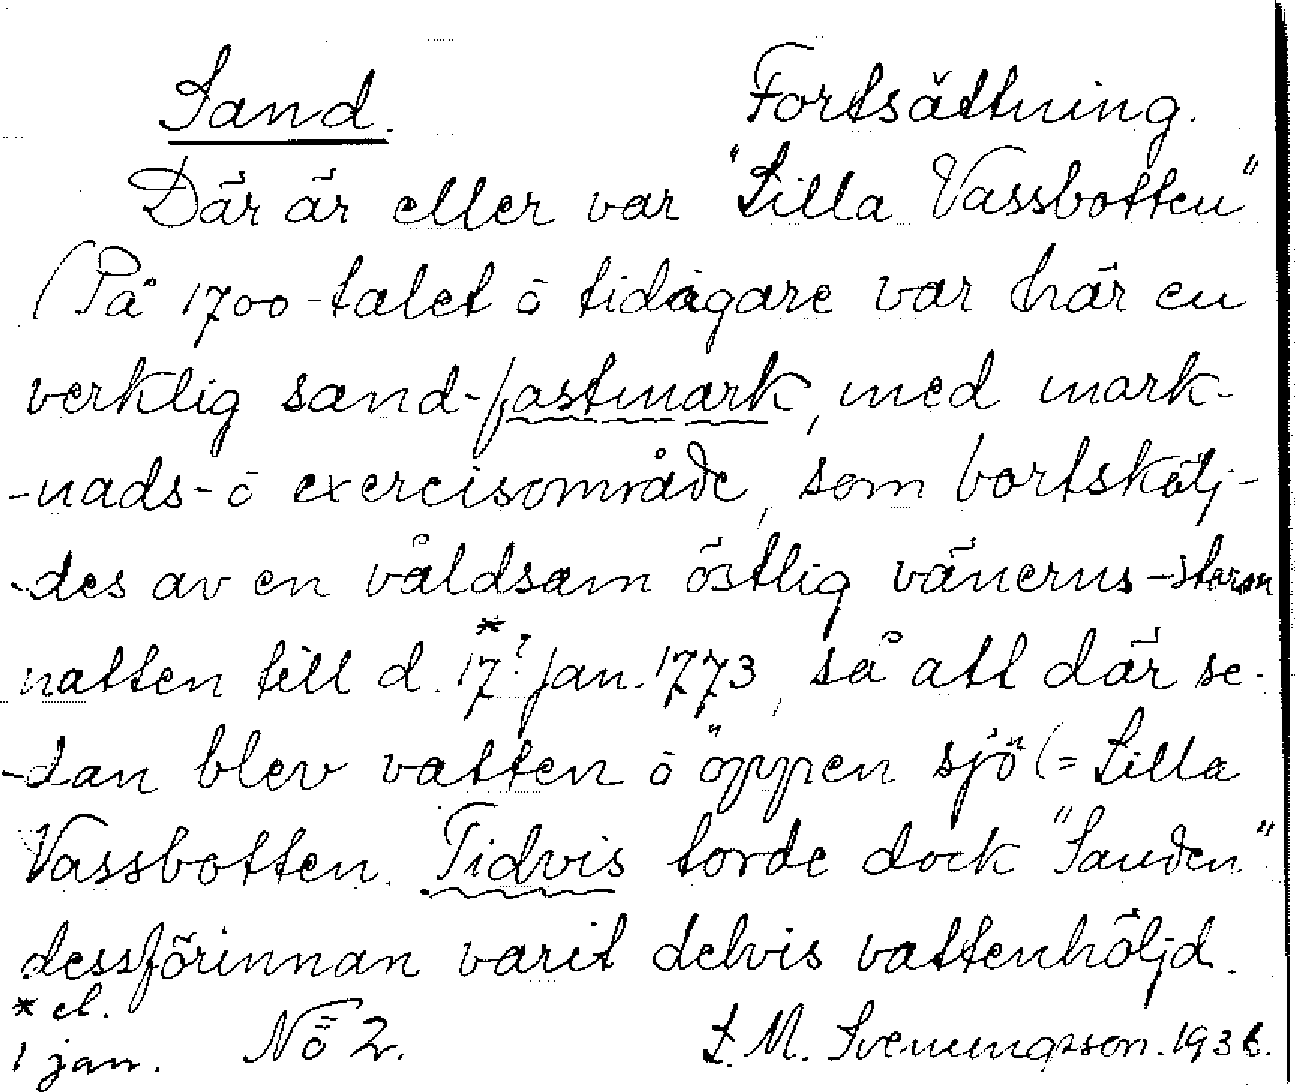 Sand. Fortsättning.
Där är eller var "Lilla Vassbotten"
(På 1700-talet ō tidigare var här en
verklig sand-fastmark, med mark-
-nads- ō exercisområde, som bortskölj-
-des av en våldsam östlig vänerns-storm
natten till d. 17?* jan. 1773, så att där se-
-dan blev vatten ō öppen sjö (= Lilla
Vassbotten. Tidvis torde dock "Sanden"
dessförinnan varit delvis vattenhöljd.
* el.
1 jan. No 2. L. M. Svenungsson. 1936.